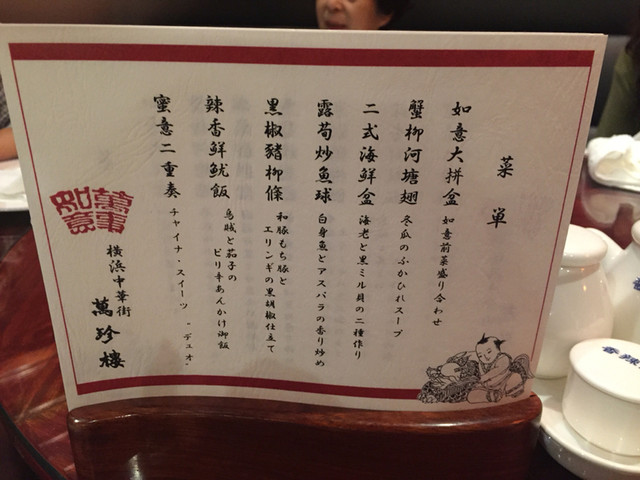 菜単
如意大拼盆
如意前菜盛り合わせ
蟹柳河塘翅
冬瓜のふかひれスープ
二式海鮮盆
海老と黒ミル貝の二種作り
露荀炒魚球
白身魚とアスパラの香り炒め
黒椒豬柳條
和豚もち豚と
エリンギの黒胡椒仕立て
辣香鮮魷飯
烏賊と茄子の
ピリ辛あんかけ御飯
蜜意二重奏
チャイナ・スイーツ -デュオ-
萬事
如意
横浜中華街
萬珍樓
香辣